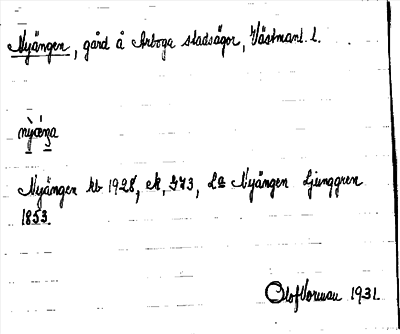 Nyängen, gård å Arboga stadsägor, Västmanl. l.
Nyängen kb 1928, ek, 573, La Nyängen Ljunggren
1853.
Olof Vorman 1931